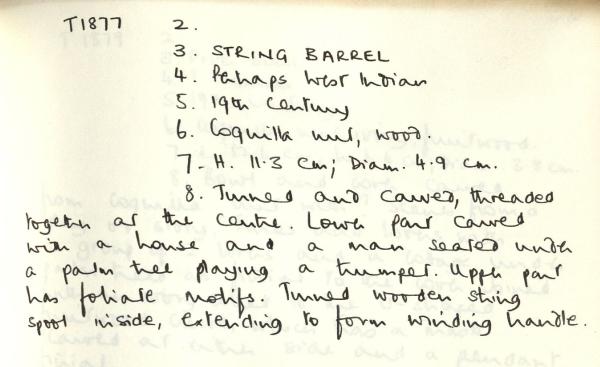 T1877 2.
3. STRING BARREL
4. Perhaps West Indian
5. 19th Century
6. Coquilla nut, wood.
7. H. 11.3 cm; Diam. 4.9 cm.
8. Turned and carved, threaded
together at the centre. Lower part carved
with a house and a man seated under
a palm tree playing a trumpet. Upper part
has foliate motifs. Turned wooden string
spool inside, extending to form winding handle.